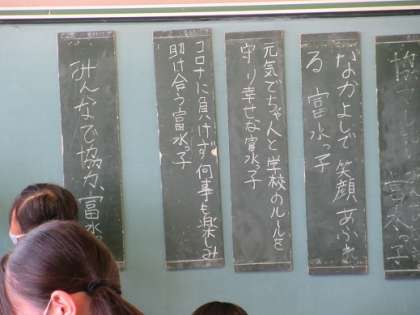 なかよしで笑顔あふれ
る富水っ子
元気でちゃんと学校のルールを
守り幸せな富水っ子
コロナに負けず何事も楽しみ
助け合う富水っ子
みんなで協力、富水